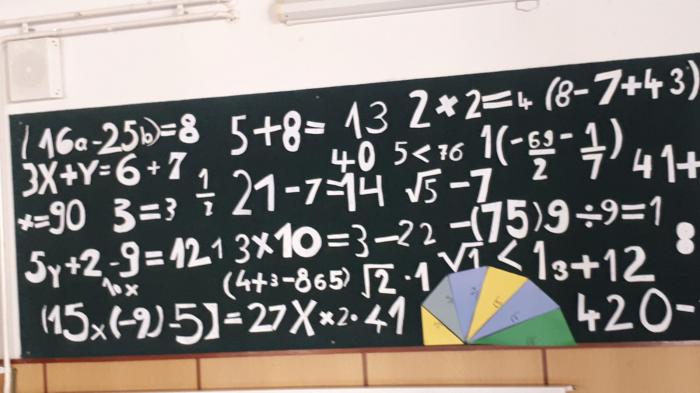 (16a-25b)=8 5+8= 13 2×2=4 (8-7+43)
3X+Y=6+7 40 5<76 1(-69/2-1/7) 41+
x=90 3=3 1/2 21-7=14 √5-7
5y+2-9=121 3×10=3-22-(75)9÷9=1 8
10x (4+3-865) √2·1 √1<13+12
(15x(-9)-5]=27X×2·41 420-